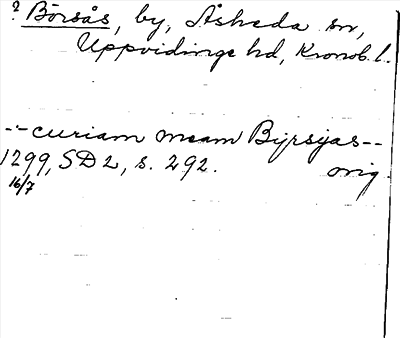 ? Börsås, by, Åsheda sn,
Uppvidinge hd, Kronob. l.
-- curiam meam Byrsyas --
1299, SD 2, s. 292. orig
16/7